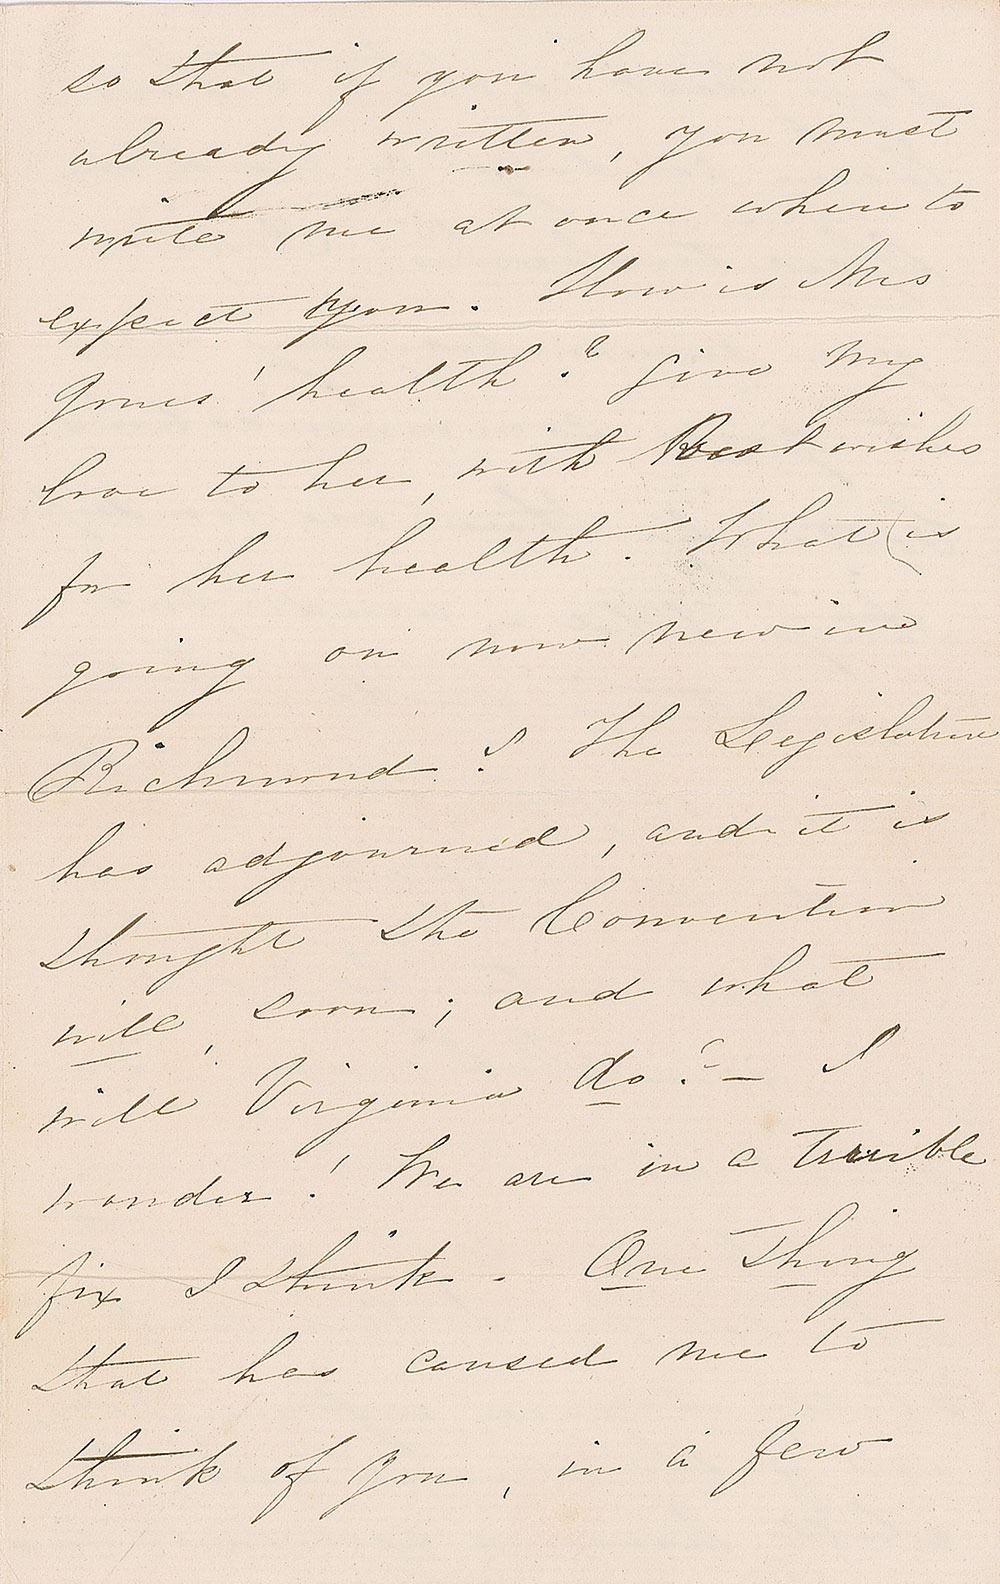 so that if you have not
already written, you must
write me at once when to
expect you. How is Mrs
Jones' health? Give my
love to her, with Best wishes
for her health. What is
going on now new in
Richmond? The Legislature
has adjourned, and it is
thought the Convention
will, soon; and what
will Virginia do? — I
wonder! We are in a terrible
fix I think. One thing
that has caused me to
think of you, in a few